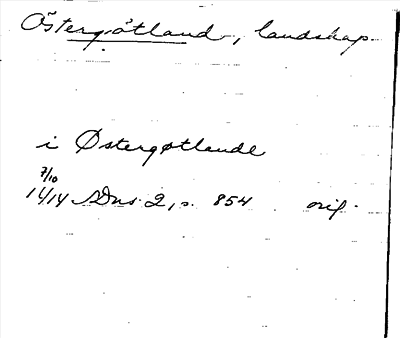 Östergötland, landskap
i Østergøtlande
7/10
1414 SDns 2, s. 854 orig.